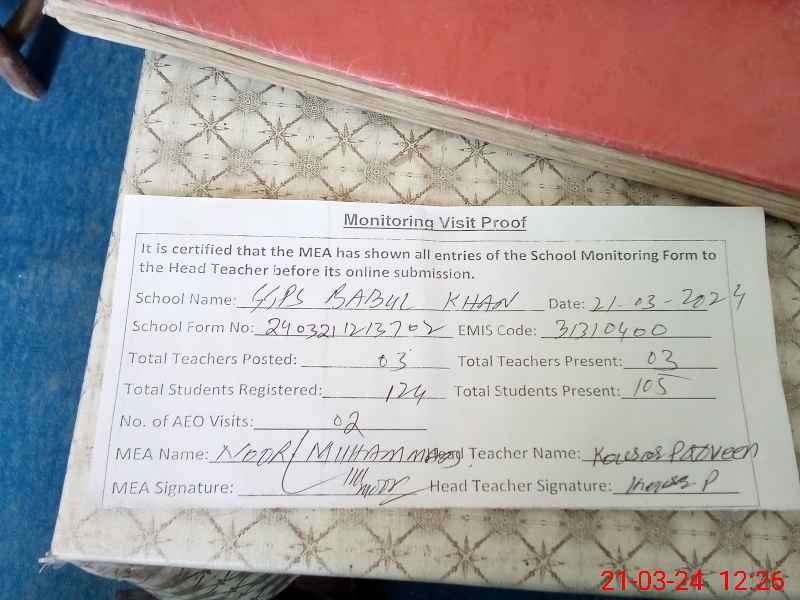 Monitoring Visit Proof
It is certified that the MEA has shown all entries of the School Monitoring Form to
the Head Teacher before its online submission.
School Name: GPS BABUL KHAN Date: 21-03-2024
School Form No: 2403211213702 EMIS Code: 31310400
Total Teachers Posted: 03 Total Teachers Present: 03
Total Students Registered: 124 Total Students Present: 105
No. of AEO Visits: 02
MEA Name: NOOR MUHAMMAD Head Teacher Name: Kousar PARVEEN
MEA Signature: Head Teacher Signature: Kousar P
21-03-24 12:26